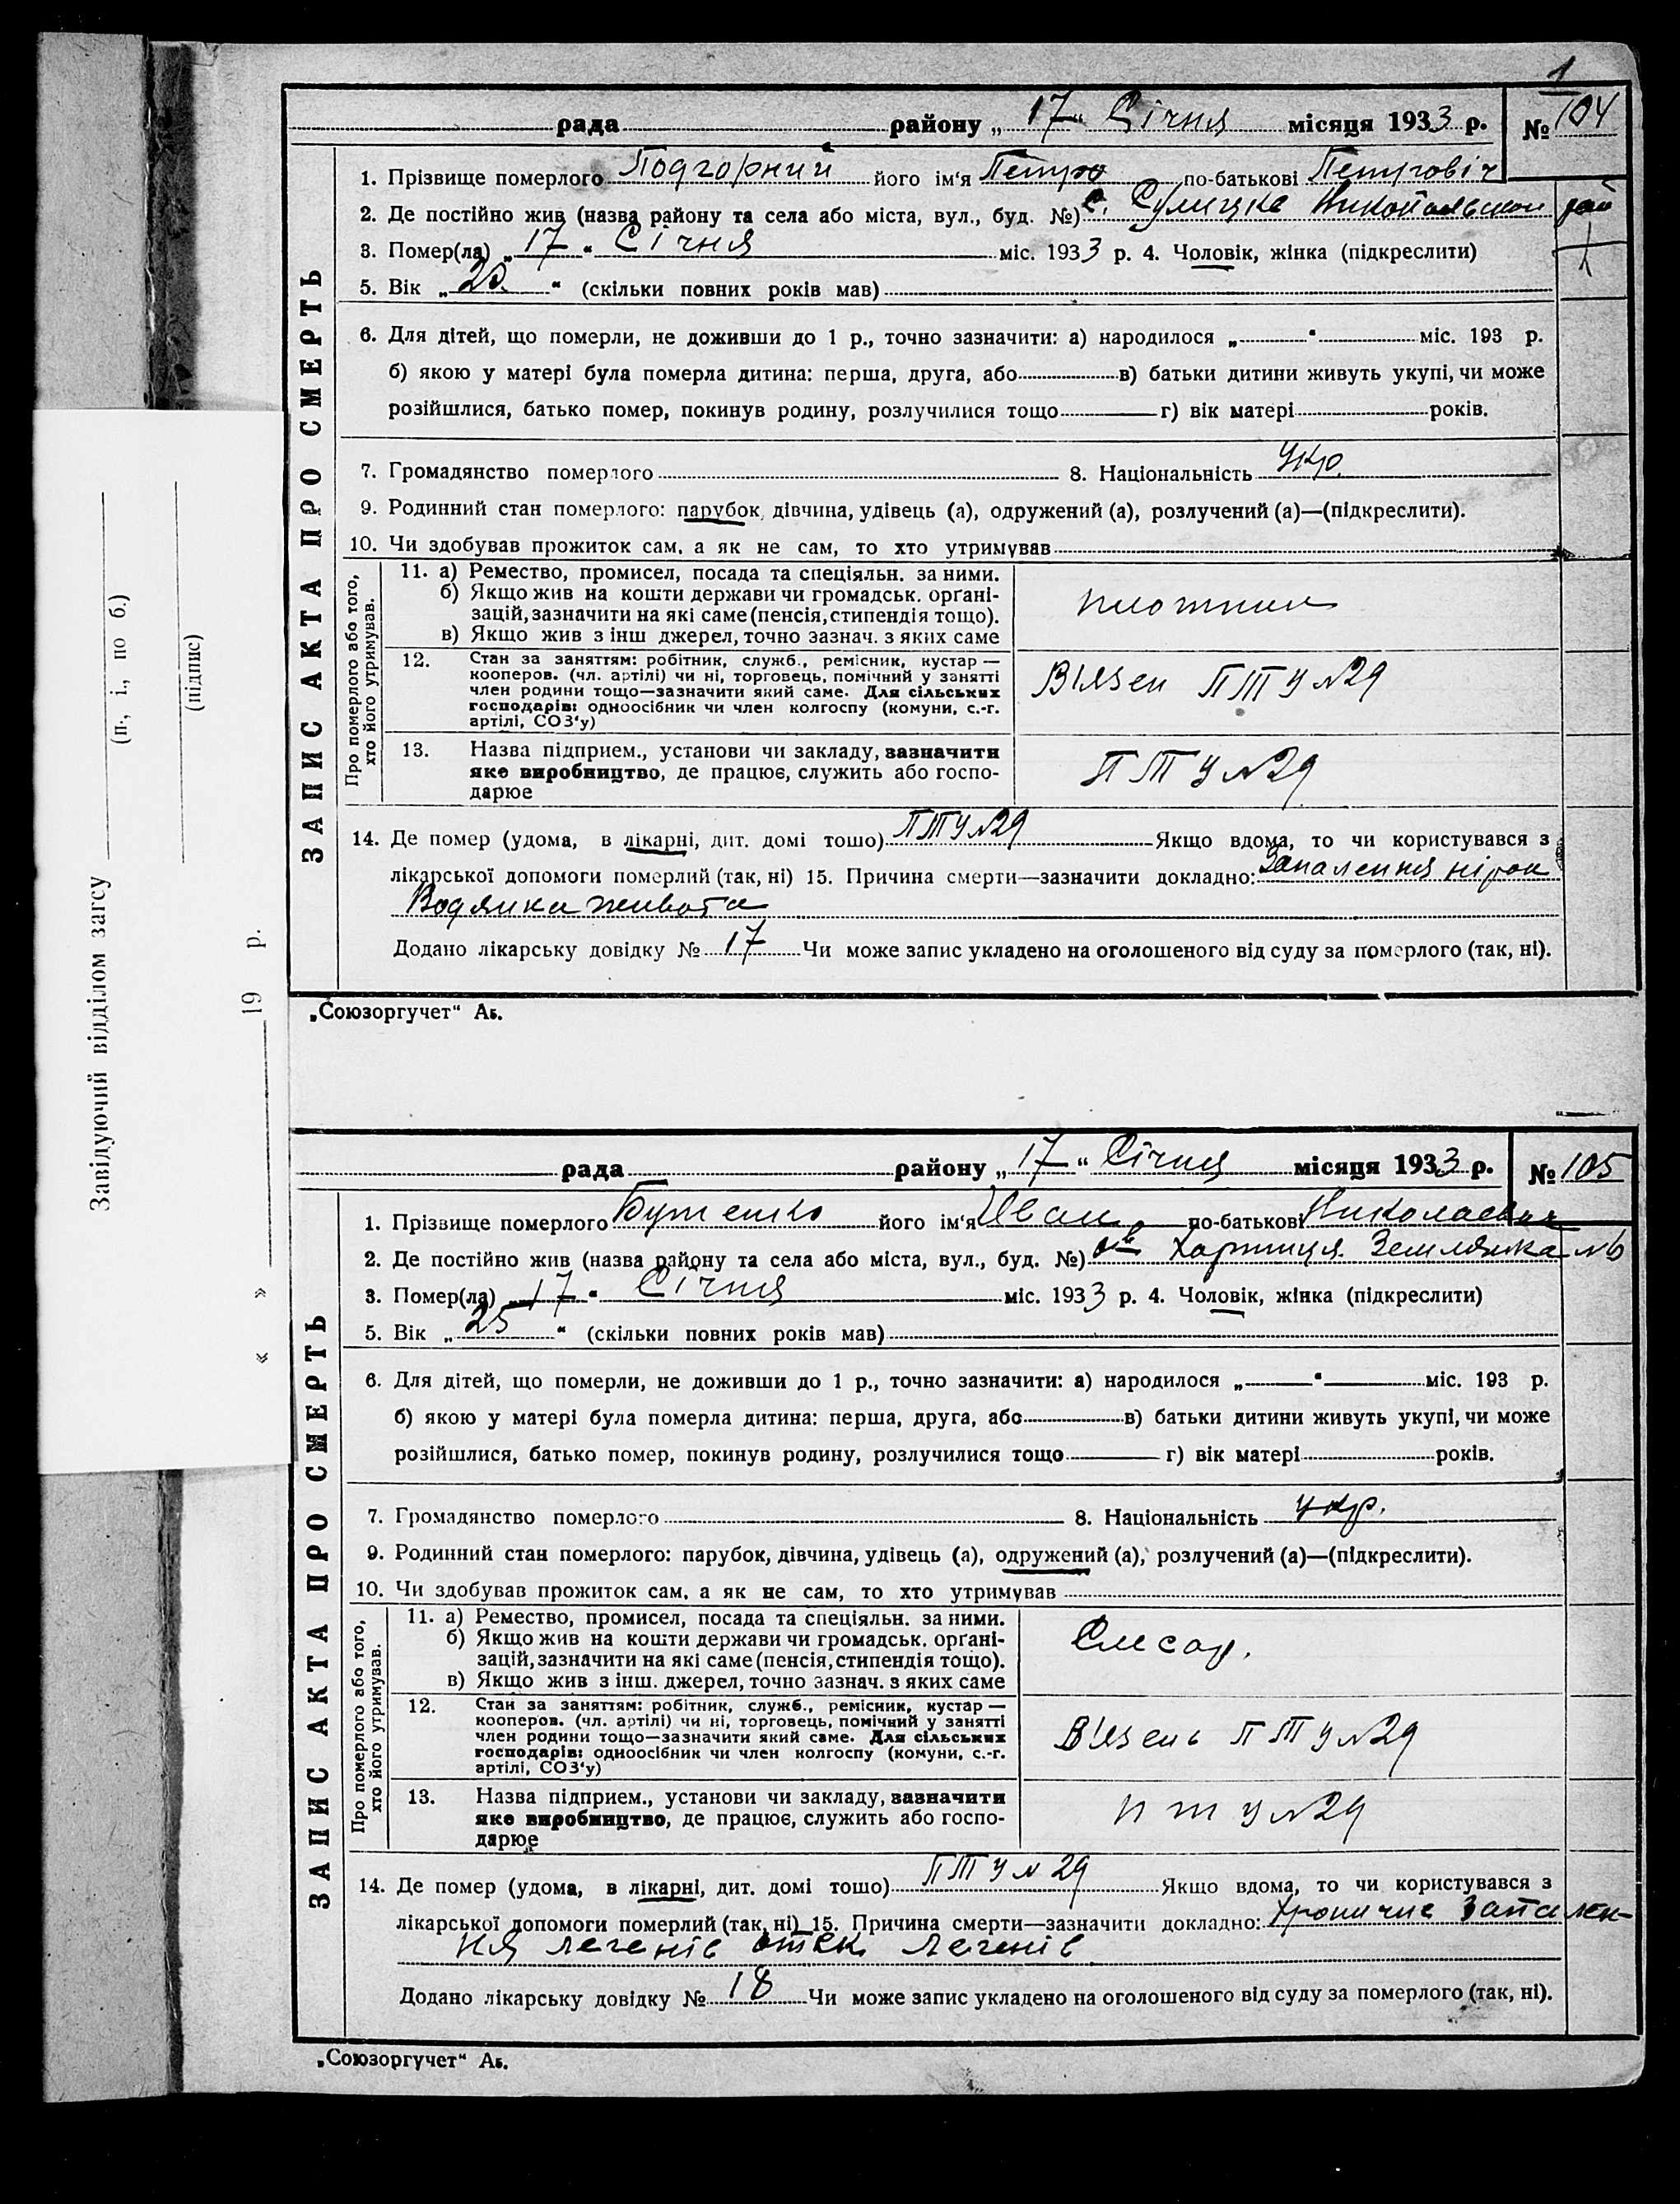 1
рада района „17“ Січня місяця 1933 р. № 104
1. Прізвище померлого Подгорний його ім'я Петро по-батькові Петровіч
2. Де постійно жив (назва району та села або міста, вул., буд. №) с. Никопольский рай
3. Помер(ла) „17“ Січня міс. 1933 р. 4. Чоловік, жінка (підкреслити)
5. Вік „20“ (скільки повних років мав)
6. Для дітей, що померли, не доживши до 1 р., точно зазначити: а) народилося „ “ міс. 193 р.
б) якою у матері була померла дитина: перша, друга, або в) батьки дитини живуть укупі, чи може
розійшлися, батько помер, покинув родину, розлучилися тощо г) вік матері років.
7. Громадянство померлого 8. Національність Укр.
9. Родинний стан померлого: парубок, дівчина, удівець (а), одружений (а), розлучений (а)—(підкреслити).
10. Чи здобував прожиток сам, а як не сам, то хто утримував
Про померлого або того, хто його утримував.
11. а) Ремество, промисел, посада та спеціяльн. за ними.
б) Якщо жив на кошти держави чи громадськ. орґані-
зацій, зазначити на які саме (пенсія, стипендія тощо).
в) Якщо жив з інш джерел, точно зазнач. з яких саме
плотник
12. Стан за заняттям: робітник, служб., ремісник, кустар —
кооперов. (чл. артілі) чи ні, торговець, помічний у занятті
член родини тощо—зазначити який саме. Для сільських
господарів: одноосібник чи член колгоспу (комуни, с.-г.
артілі, СОЗ'у)
Вłязен ПТУ №29
13. Назва підприєм., установи чи закладу, зазначити
яке виробництво, де працює, служить або госпо-
дарює
ПТУ №29
14. Де помер (удома, в лікарні, дит. домі тошо) ПТУ №29 Якщо вдома, то чи користувався з
лікарської допомоги померлий (так, ні) 15. Причина смерти—зазначити докладно: Запалення нірок
Водянка живота
Додано лікарську довідку № 17 Чи може запис укладено на оголошеного від суду за померлого (так, ні).
ЗАПИС АКТА ПРО СМЕРТЬ
„Союзоргучет“ А5.
Завідуючий відділом загсу
(п., і., по б.)
(підпис)
« » 19 р.
рада району „17“ Січня місяця 1933 р. № 105
1. Прізвище померлого Бутенко його ім'я Иван по-батькові Николаевич
2. Де постійно жив (назва району та села або міста, вул., буд. №) Хортиця Землянка №6
3. Помер(ла) „17“ Січня міс. 1933 р. 4. Чоловік, жінка (підкреслити)
5. Вік „25“ (скільки повних років мав)
6. Для дітей, що померли, не доживши до 1 р., точно зазначити: а) народилося „ “ міс. 193 р.
б) якою у матері була померла дитина: перша, друга, або в) батьки дитини живуть укупі, чи може
розійшлися, батько помер, покинув родину, розлучилися тощо г) вік матері років.
7. Громадянство померлого 8. Національність укр.
9. Родинний стан померлого: парубок, дівчина, удівець (а), одружений (а), розлучений (а)—(підкреслити).
10. Чи здобував прожиток сам, а як не сам, то хто утримував
Про померлого або того, хто його утримував.
11. а) Ремество, промисел, посада та спеціяльн. за ними.
б) Якщо жив на кошти держави чи громадськ. орґані-
зацій, зазначити на які саме (пенсія, стипендія тощо).
в) Якщо жив з інш. джерел, точно зазнач. з яких саме
Слесар.
12. Стан за заняттям: робітник, служб., ремісник, кустар —
кооперов. (чл. артілі) чи ні, торговець, помічний у занятті
член родини тощо—зазначити який саме. Для сільських
господарів: одноосібник чи член колгоспу (комуни, с.-г.
артілі, СОЗ'у)
Вʼязень ПТУ №29
13. Назва підприєм., установи чи закладу, зазначити
яке виробництво, де працює, служить або госпо-
дарює
ПТУ №29
14. Де помер (удома, в лікарні, дит. домі тошо) ПТУ №29 Якщо вдома, то чи користувався з
лікарської допомоги померлий (так, ні) 15. Причина смерти—зазначити докладно: Хроничне Запален-
ня легенів отек легенів
Додано лікарську довідку № 18 Чи може запис укладено на оголошеного від суду за померлого (так, ні).
ЗАПИС АКТА ПРО СМЕРТЬ
„Союзоргучет“ А5.